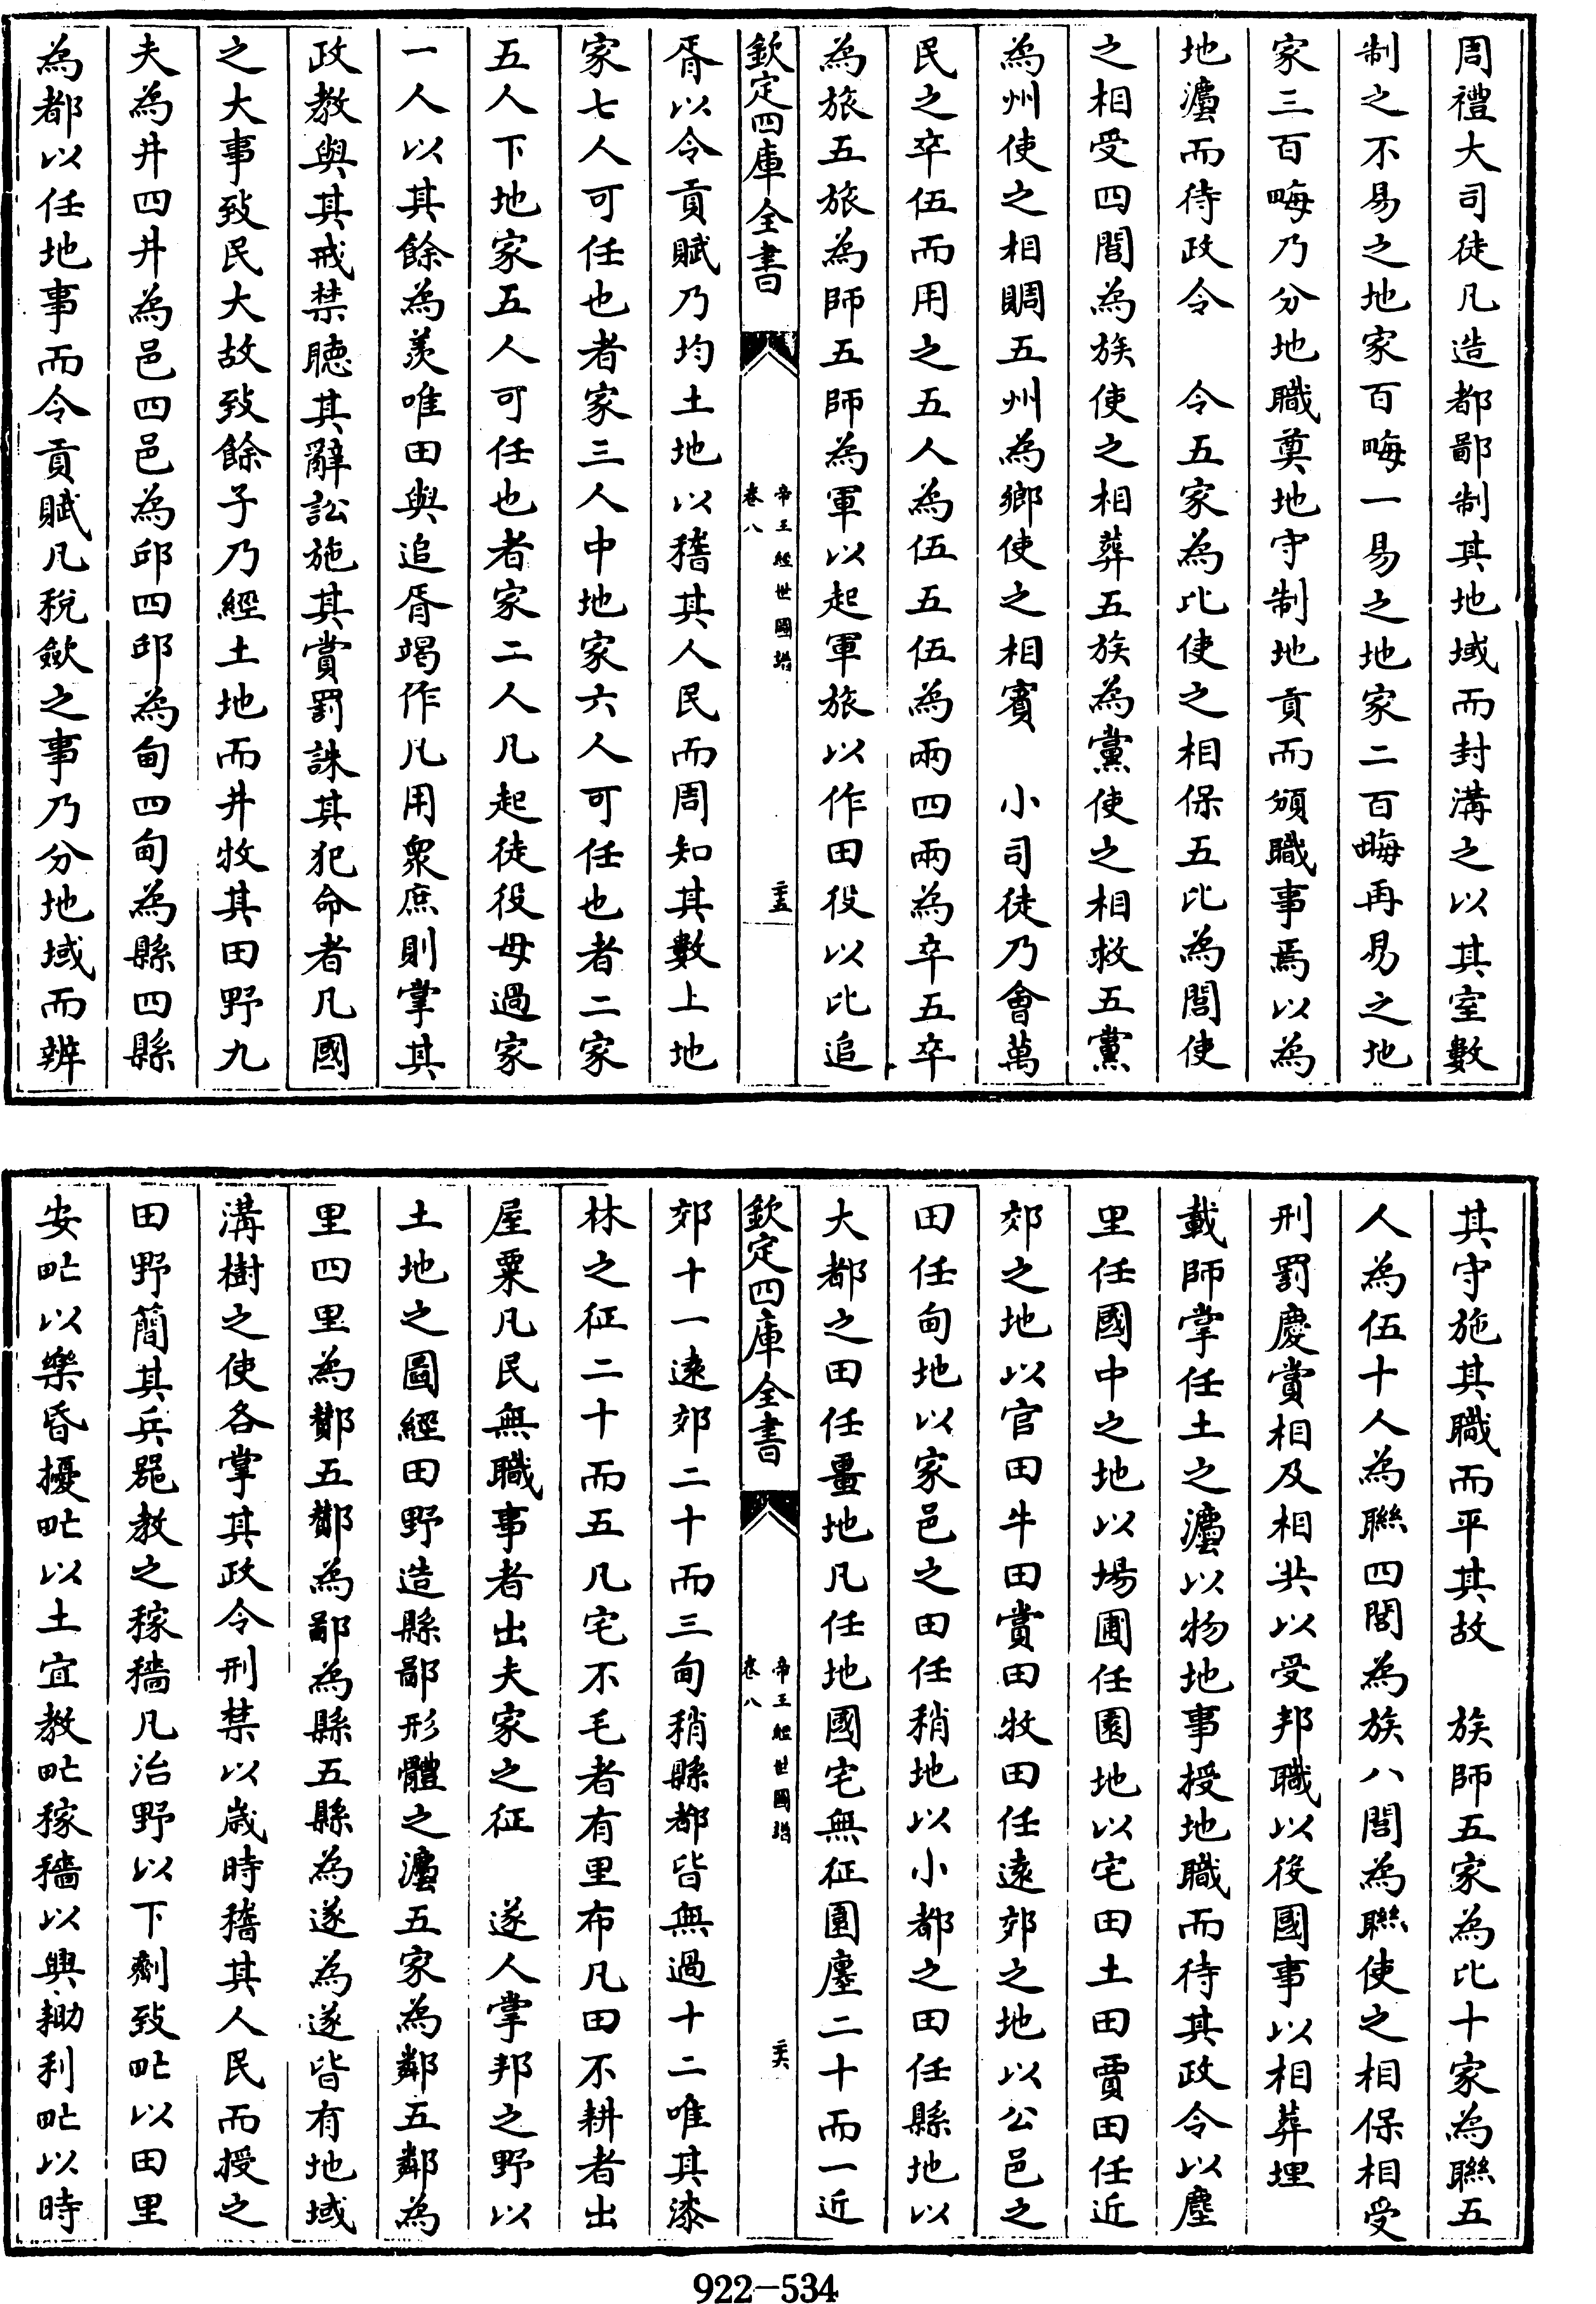 周禮大司徒凡造都鄙制其地域而封溝之以其室數
制之不易之地家百晦一易之地家二百晦再易之地
家三百晦乃分地職奠地守制地貢而頒職事焉以為
地灋而待政令　令五家為比使之相保五比為閭使
之相受四閭為族使之相葬五族為黨使之相救五黨
為州使之相賙五州為鄉使之相賓　小司徒乃會萬
民之卒伍而用之五人為伍五伍為兩四兩為卒五卒
為旅五旅為師五師為軍以起軍旅以作田役以比追
欽定四庫全書
帝王經世圖譜
卷八
二十五
胥以令貢賦乃均土地以稽其人民而周知其數上地
家七人可任也者家三人中地家六人可任也者二家
五人下地家五人可任也者家二人凡起徒役毋過家
一人以其餘為羨唯田與追胥竭作凡用衆庶則掌其
政教與其戒禁聽其辭訟施其賞罰誅其犯命者凡國
之大事致民大故致餘子乃經土地而井牧其田野九
夫為井四井為邑四邑為邱四邱為甸四甸為縣四縣
為都以任地事而令貢賦凡稅斂之事乃分地域而辨
其守施其職而平其故　族師五家為比十家為聯五
人為伍十人為聯四閭為族八閭為聯使之相保相受
刑罰慶賞相及相共以受邦職以役國事以相葬埋
載師掌任土之灋以物地事授地職而待其政令以廛
里任國中之地以場圃任園地以宅田土田賈田任近
郊之地以官田牛田賞田牧田任遠郊之地以公邑之
田任甸地以家邑之田任稍地以小都之田任縣地以
大都之田任畺地凡任地國宅無征園廛二十而一近
欽定四庫全書
帝王經世圖譜
卷八
二十六
郊十一遠郊二十而三甸稍縣都皆無過十二唯其漆
林之征二十而五凡宅不毛者有里布凡田不耕者出
屋粟凡民無職事者出夫家之征　遂人掌邦之野以
土地之圖經田野造縣鄙形體之灋五家為鄰五鄰為
里四里為酇五酇為鄙為縣五縣為遂為遂皆有地域
溝樹之使各掌其政令刑禁以歲時稽其人民而授之
田野簡其兵器教之稼穡凡治野以下劑致甿以田里
安甿以樂昏擾甿以土宜教甿稼穡以興耡利甿以時
922-534